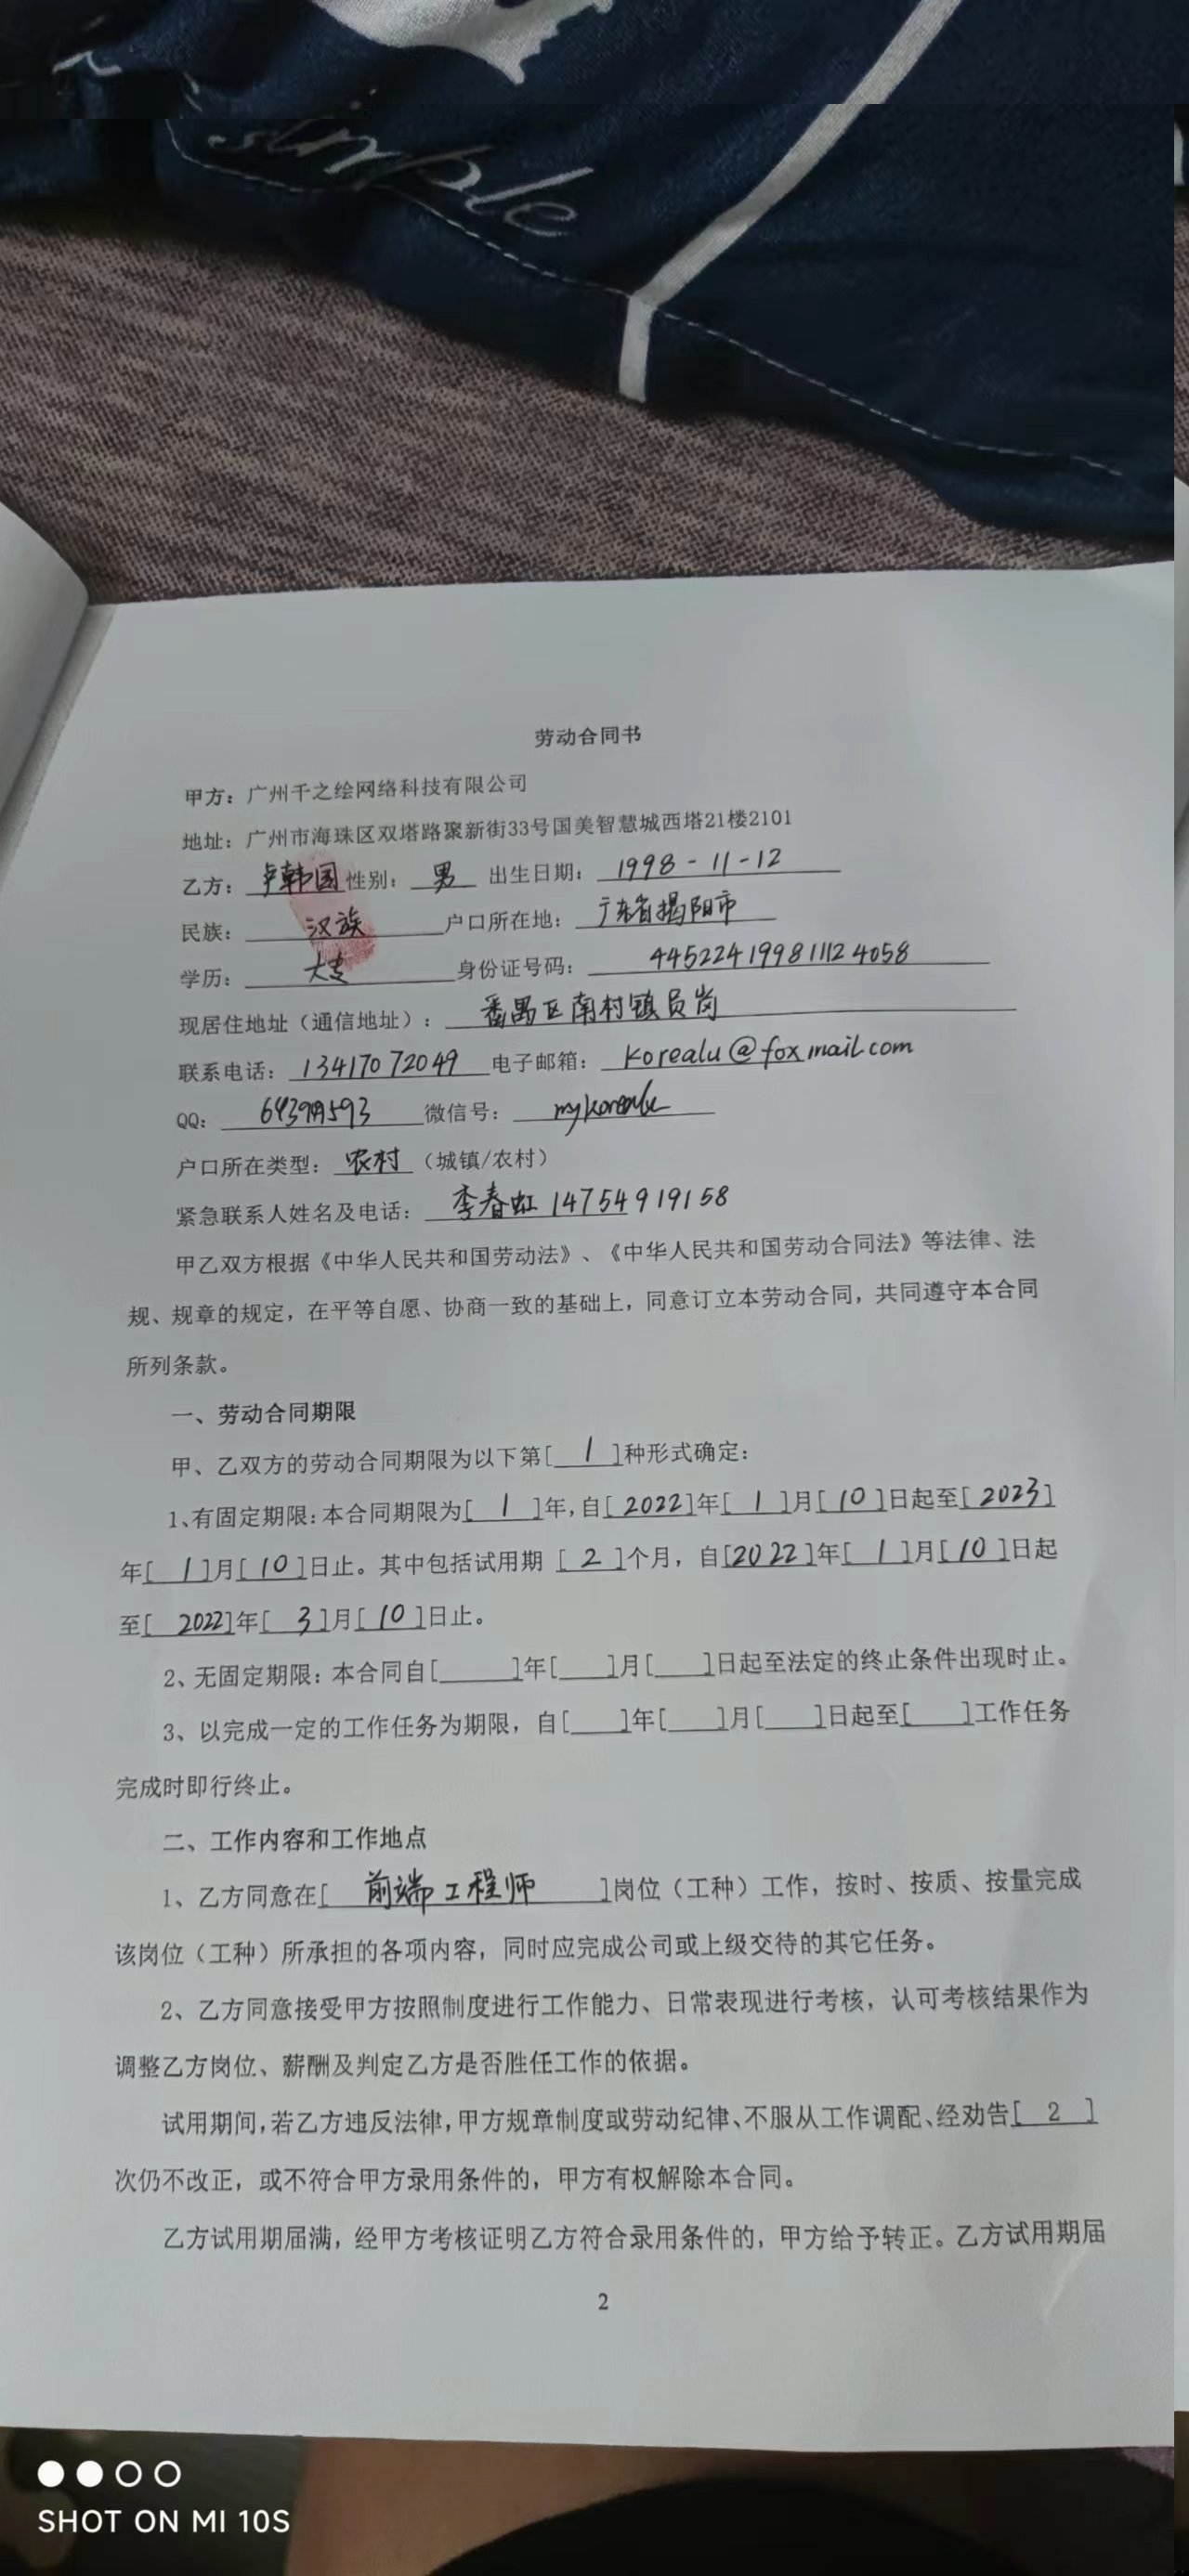 simple
劳动合同书
甲方：广州千之绘网络科技有限公司
地址：广州市海珠区双塔路聚新街33号国美智慧城西塔21楼2101
乙方：卢韩国 性别：男 出生日期：1998-11-12
民族：汉族 户口所在地：广东省揭阳市
学历：大专 身份证号码：445224199811124058
现居住地址（通信地址）：番禺区南村镇员岗
联系电话：13417072049 电子邮箱：korealu@foxmail.com
QQ： 微信号：mykorealu
户口所在类型：农村（城镇/农村）
紧急联系人姓名及电话：李春虹 14754919158
甲乙双方根据《中华人民共和国劳动法》、《中华人民共和国劳动合同法》等法律、法
规、规章的规定，在平等自愿、协商一致的基础上，同意订立本劳动合同，共同遵守本合同
所列条款。
一、劳动合同期限
甲、乙双方的劳动合同期限为以下第[ 1 ]种形式确定：
1、有固定期限：本合同期限为[ 1 ]年，自[ 2022 ]年[ 1 ]月[ 10 ]日起至[ 2023 ]
年[ 1 ]月[ 10 ]日止。其中包括试用期 [ 2 ]个月，自[ 2022 ]年[ 1 ]月[ 10 ]日起
至[ 2022 ]年[ 3 ]月[ 10 ]日止。
2、无固定期限：本合同自[____]年[___]月[___]日起至法定的终止条件出现时止。
3、以完成一定的工作任务为期限，自[___]年[___]月[___]日起至[___]工作任务
完成时即行终止。
二、工作内容和工作地点
1、乙方同意在[ 前端工程师 ]岗位（工种）工作，按时、按质、按量完成
该岗位（工种）所承担的各项内容，同时应完成公司或上级交待的其它任务。
2、乙方同意接受甲方按照制度进行工作能力、日常表现进行考核，认可考核结果作为
调整乙方岗位、薪酬及判定乙方是否胜任工作的依据。
试用期间，若乙方违反法律，甲方规章制度或劳动纪律、不服从工作调配、经劝告[ 2 ]
次仍不改正，或不符合甲方录用条件的，甲方有权解除本合同。
乙方试用期届满，经甲方考核证明乙方符合录用条件的，甲方给予转正。乙方试用期届
2
SHOT ON MI 10S